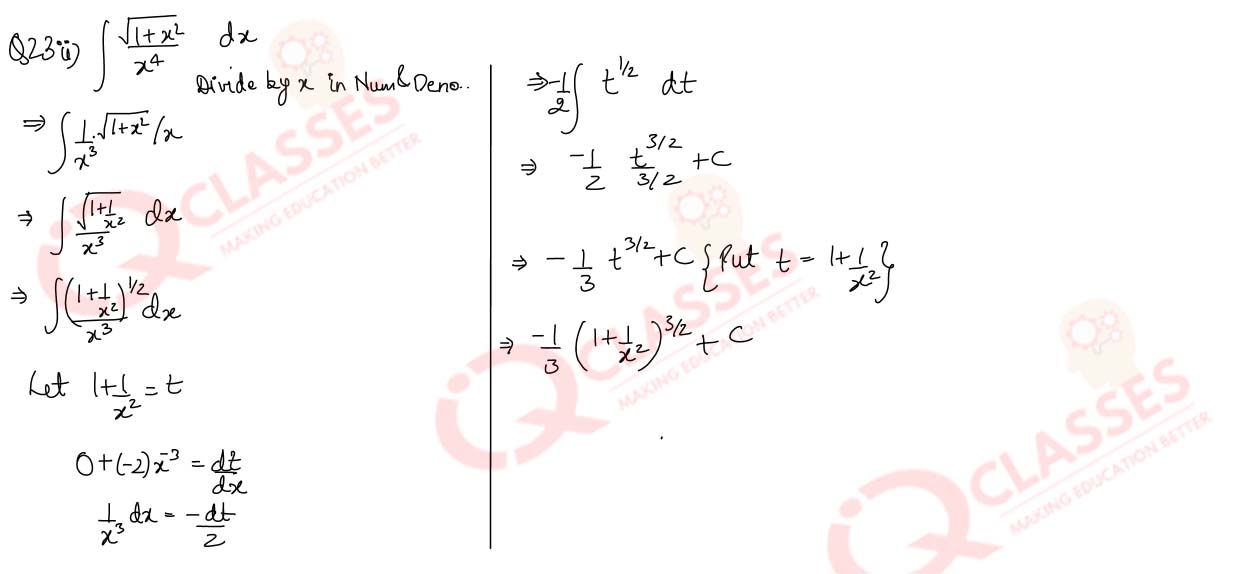 Q23 ii) ∫ √(1+x²)/x⁴ dx
Divide by x in Num & Deno..
⇒ ∫ 1/x³ · √(1+x²)/x
⇒ ∫ √(1+1/x²)/x³ dx
⇒ ∫ (1+1/x²)^1/2/x³ dx
Let 1+1/x² = t
0+(-2)x⁻³ = dt/dx
1/x³ dx = -dt/2
⇒ -1/2 ∫ t^1/2 dt
⇒ -1/2 t^3/2/3/2 + C
⇒ -1/3 t^3/2 + C {Put t = 1+1/x²}
⇒ -1/3 (1+1/x²)^3/2 + C
IQ CLASSES
MAKING EDUCATION BETTER
IQ CLASSES
MAKING EDUCATION BETTER
IQ CLASSES
MAKING EDUCATION BETTER